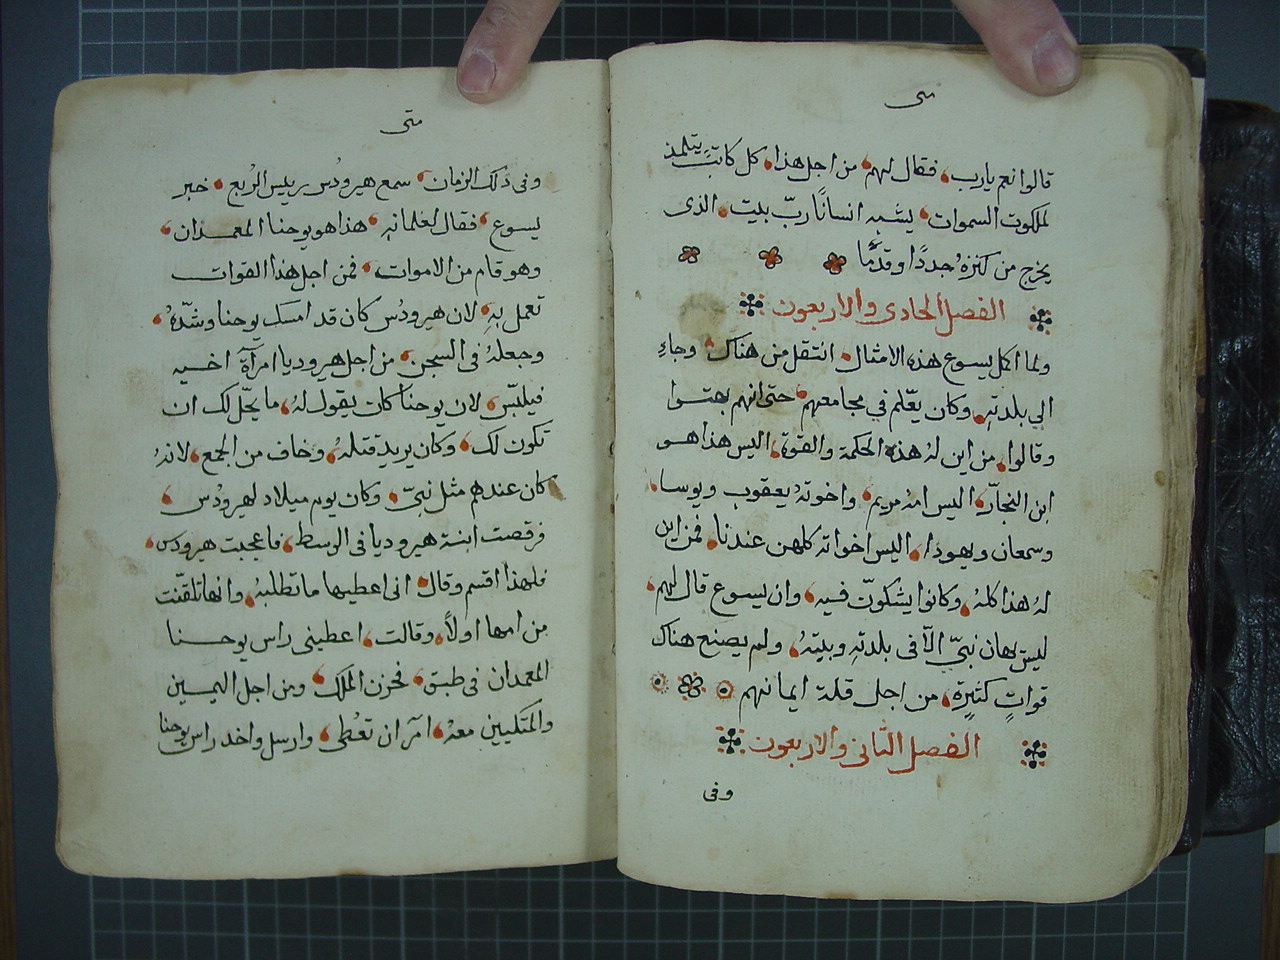 متى
قالوا نعم يارب، فقال لهم، من اجل هذا، كل كاتبٍ يتلمذ
لملكوت السموات، يشبه انسانًا ربّ بيت، الذى
يخرج من كنزهُ جددًا وقدمًا
الفصل الحادى والاربعون
ولما اكمل يسوع هذه الامثال، انتقل من هناك، وجاءِ
الي بلدتهِ، وكان يعّلم في مجامعهم، حتى انهم بهتوا
وقالوا، من اين لهُ هذه الحكمة والقوة، اليس هذا هو
ابن النجاّر، اليس امهُ مريم، واخوتهُ يعقوب ويوسا،
وسمعان ويهوذا، اليس اخواته كلهن عندنا، فمن اين
لهُ هذا كلهُ، وكانوا يشكوّن فيه، وان يسوع قال لهم،
ليس يهان نبيّ الاّ في بلدتهِ وبيتهُ، ولم يصنع هناك
قواتٍ كثيرة، من اجل قلة ايمانهم
الفصل الثانى والاربعون
وفى
متى
وفى ذلك الزمان، سمع هيرودُس ريليس الرُبع، خبر
يسوع، فقال لغلمانهِ، هذا هو يوحنا المعمدان،
وهو قام من الاموات، فمن اجل هذا القوات
تعمل بهِ، لان هيرودُس كان قد امسك يوحنا وشدّهُ،
وجعلهُ فى السجن، من اجل هيروديا امرآة اخيه
فيلبّس، لان يوحنا كان يقول لهُ، ما يحّل لك ان
تكون لك، وكان يريد قتلهُ، وخاف من الجمع، لانهُ
كان عندهم مثل نبيّ، وكان يوم ميلاد لهيرودُس،
فرقصت ابنة هيروديا فى الوسط، فاعجبت هيرودس،
فلهذا اقسم وقال، انى اعطيها ما تطلبهُ، وانها تلقّنت
من امها اولاً، وقالت، اعطينى راس يوحنا
المعمدان فى طبق، فحزن الملك، ومن اجل اليمين
والمتكيين معهُ، امر ان تعُطى، وارسل واخد راس يوحنا